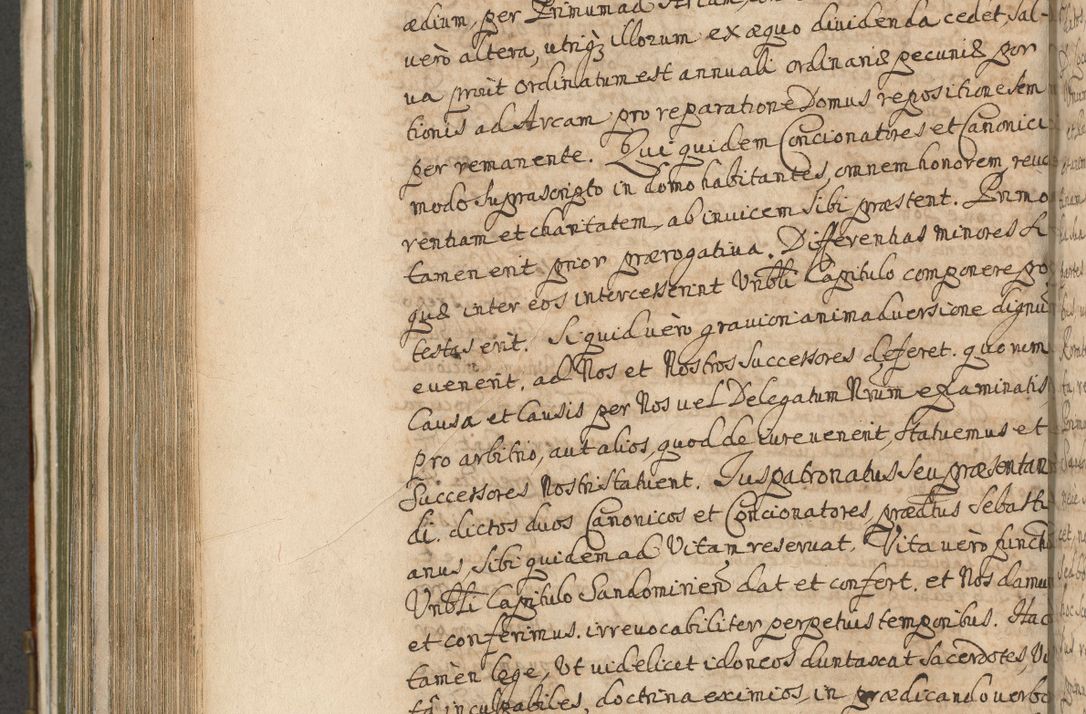 ædium, per Primum ad Arcam,
uerò altera, utriq3 illorum ex æquo diuidenda cedet, sal-
ua prout ordinatum est annuali ordinariæ pecuniæ por
tionis ad Arcam pro reparatione Domus repositione sem
per remanente. Qui quidem Concionatores et Canonici
modo suprascripto in domo habitantes, omnem honorem, reue
rentiam et charitatem, ab inuicem sibi præstent. Primo
tamen erit prior prærogatiua. Differentias minores si
quæ inter eos intercesserint Vnbli Capitulo componere po
testas erit. Si quid uerò grauiori animaduersione dignū
euenerit, ad Nos et Nostros Successores deferet. quorum
Causa et Causis per Nos uel Delegatum Nrum examinatis
pro arbitrio, aut alios, quod de iure uenerit, statuemus et
Successores Nostri statuent. Ius patronatus seu præsentan
di, dictos duos Canonicos et Concionatores, prædtus Sebasti
anus, sibi quidem ad Vitam reseruat. Vita uerò functo
Vnbli Capitulo Sandomirien dat et confert, et Nos damus
et conferimus, irreuocabiliter perpetuis temporibus. Hac
tamèn lege, Vt uidelicet idoneos duntaxat sacerdotes, Vi
tâ inculpabiles, doctrina eximios, in prædicando uerbo